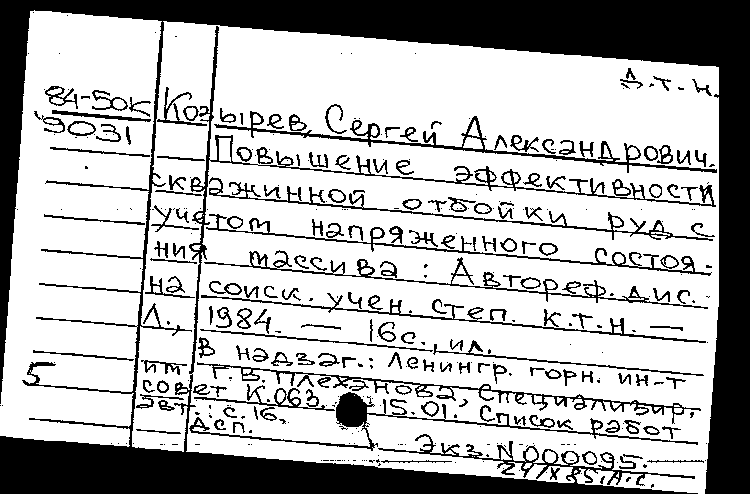 Д.т.н.
84-50К Козырев, Сергей Александрович.
9031
Повышение эффективности
скважинной отбойки руд с
учетом напряженного состоя-
ния массива : Автореф. дис.
на соиск. учен. степ. к.т.н. —
Л., 1984. — 16с., ил.
В надзаг.: Ленингр. горн. ин-т
им. Г.В. Плеханова, Специализир.
5
совет К.063. 15.01. Список работ
авт.: с. 16.
Дсп.
Экз. N 000095.
24/X 85. А.С.